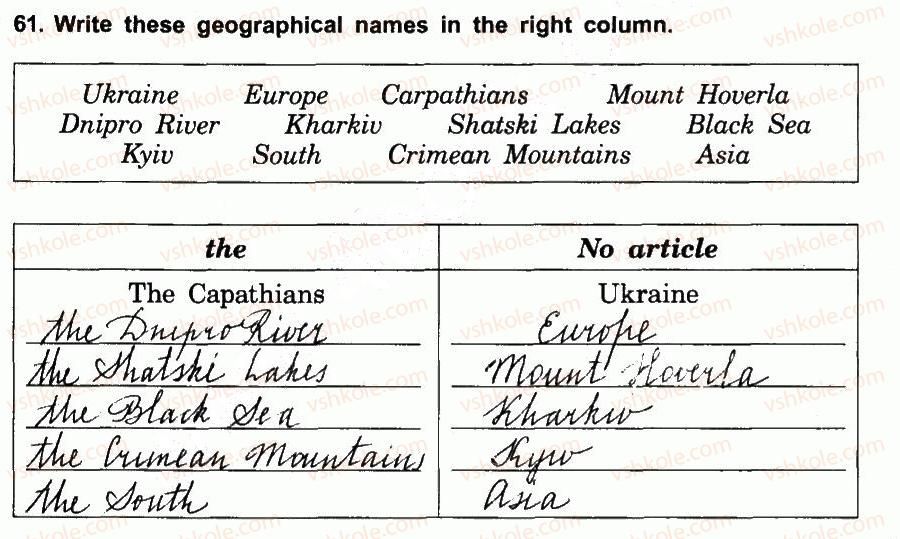 61. Write these geographical names in the right column.
Ukraine Europe Carpathians Mount Hoverla
Dnipro River Kharkiv Shatski Lakes Black Sea
Kyiv South Crimean Mountains Asia
the No article
The Capathians Ukraine
the Dnipro River Europe
the Shatski Lakes Mount Hoverla
the Black Sea Kharkiv
the Crimean Mountains Kyiv
the South Asia
vshkole.com